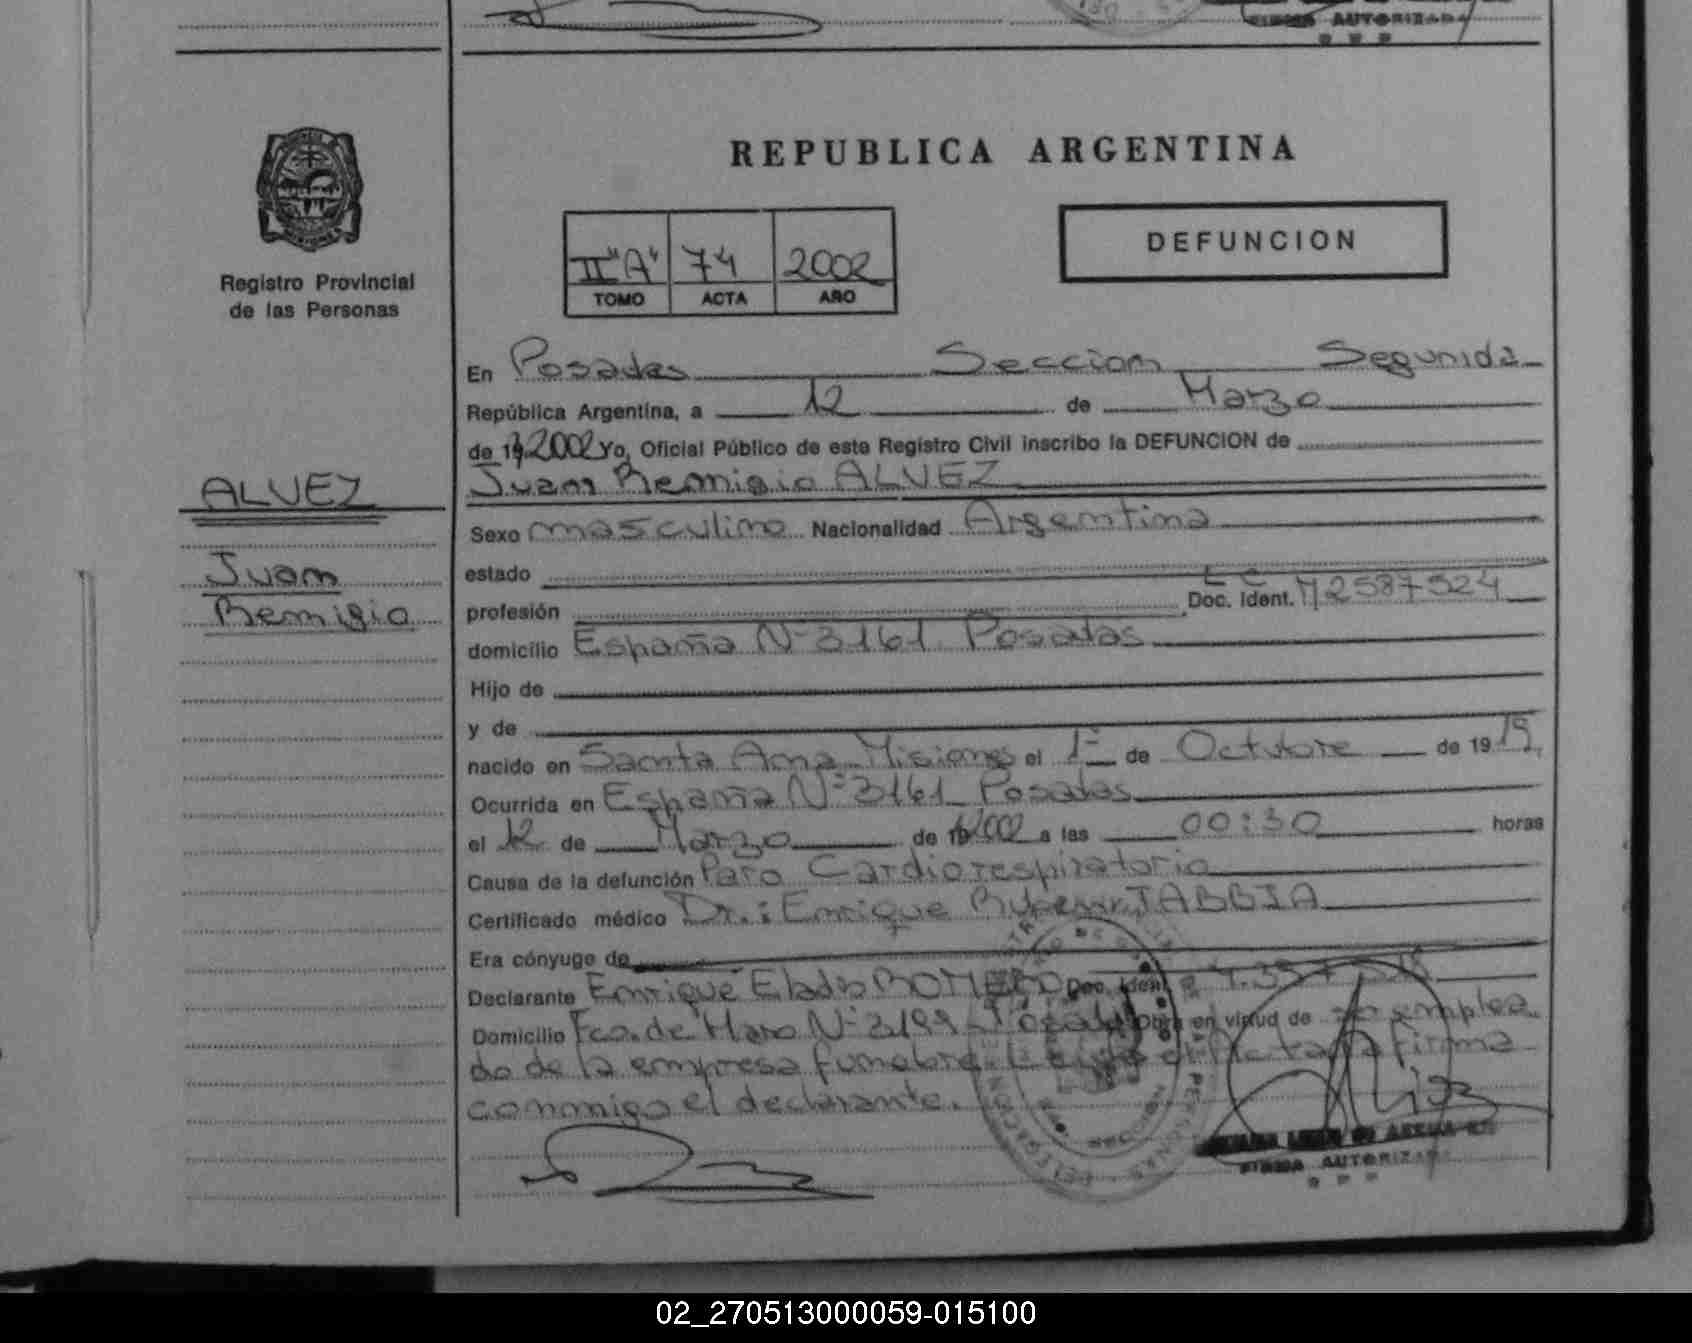 FIRMA AUTORIZADA
R P P
Registro Provincial
de las Personas
REPUBLICA ARGENTINA
II "A" 74 2002
TOMO ACTA AÑO
DEFUNCION
En Posadas Seccion Segunda
República Argentina, a 12 de Marzo
de 19 2002 Yo, Oficial Público de este Registro Civil inscribo la DEFUNCION de
Juan Remigio ALVEZ
ALVEZ
Juan
Remigio
Sexo masculino Nacionalidad Argentina
estado
profesión Doc. Ident. M2587524
domicilio España Nº 3161 Posadas
Hijo de
y de
nacido en Santa Ana Misiones el 1º de Octubre de 19 19
Ocurrida en España Nº 3161 Posadas
el 12 de Marzo de 2002 a las 00:30 horas
Causa de la defunción Paro Cardiorespiratorio
Certificado médico Dr.: Enrique Ruben JABBIA
Era cónyuge de
Declarante Enrique Eladio ROMERO Doc. Ident.
Domicilio Fco. de Haro Nº 3199 Posadas Obra en virtud de ser emplea
do de la empresa funebre. Leida el Acta la firma
conmigo el declarante.
FIRMA AUTORIZADA
R P P
02_270513000059-015100